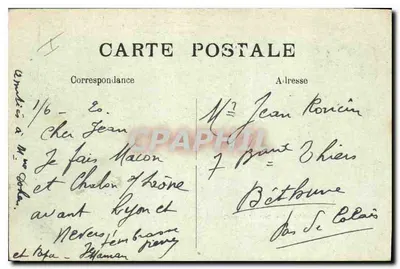 I
CARTE POSTALE
Correspondance
Adresse
1/6 - 20
Cher Jean
Je fais Macon
et Chalon s/Saône
avant Lyon et
Nevers. J'embrasse
et Papa - Maman
Amitiés à Mme
Mr Jean
7 Bard Thiers
Béthune
Pas de Calais
CPARAMA